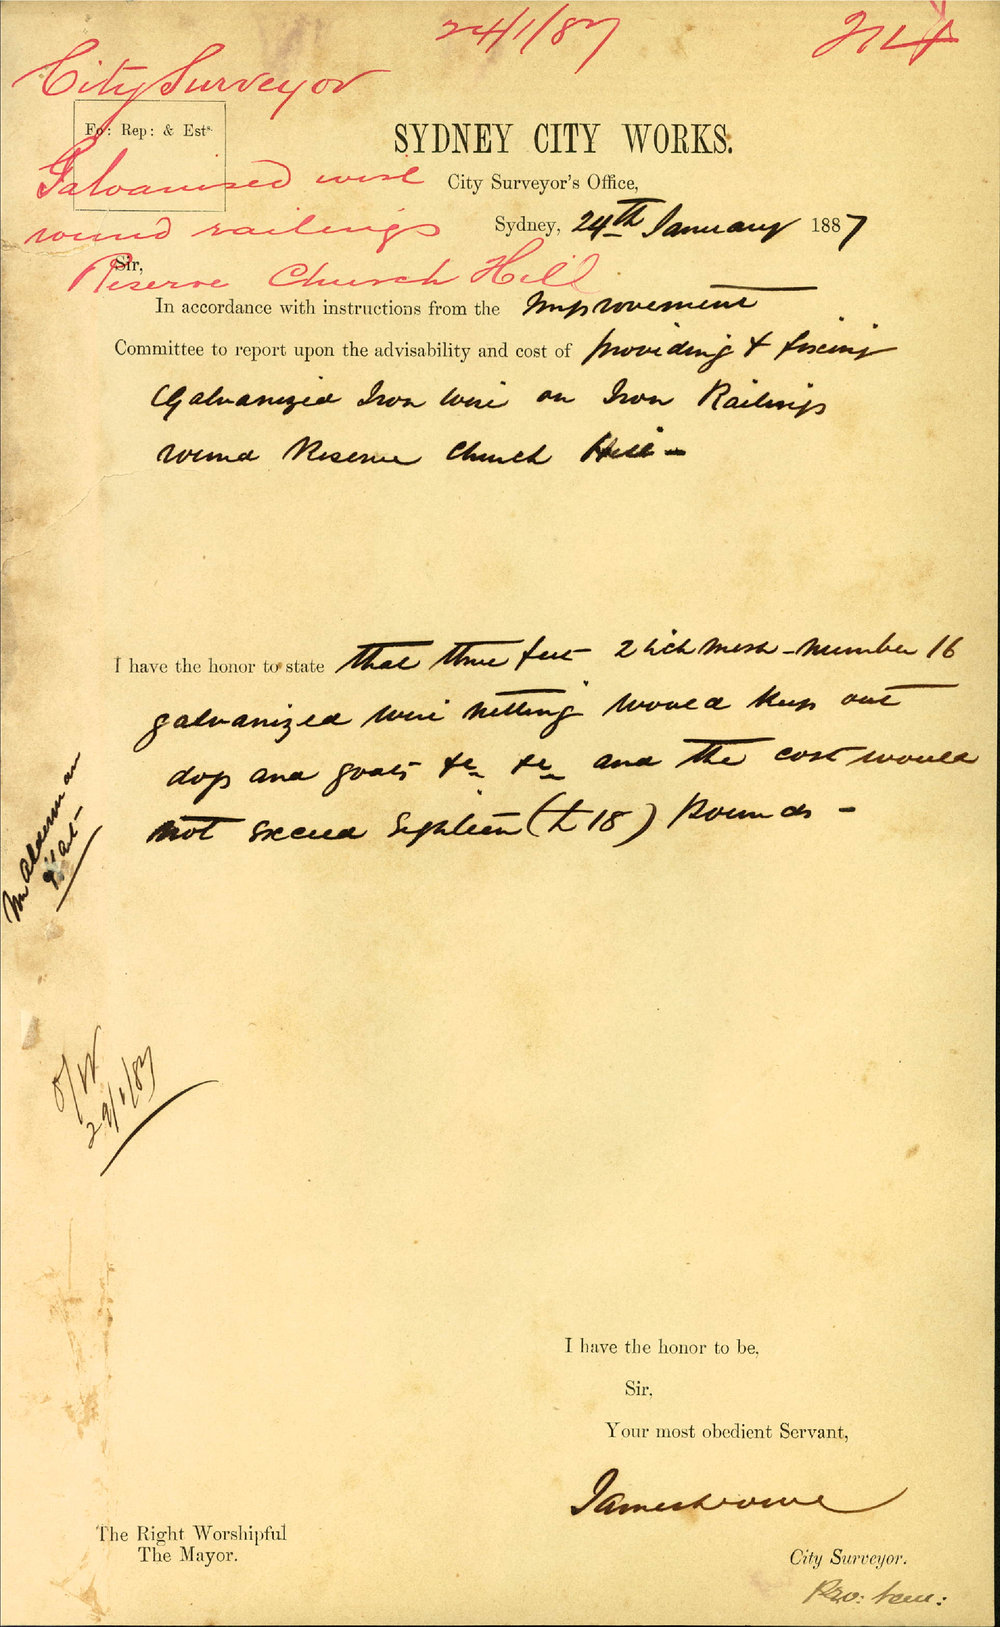 24/1/87
214
City Surveyor
Fo: Rep: & Ests.
SYDNEY CITY WORKS.
Galvanised wire
City Surveyor's Office,
round railings
Sydney, 24th January 1887
Sir,
Reserve Church Hill
In accordance with instructions from the Improvement
Committee to report upon the advisability and cost of providing & fixing
Galvanized Iron Wire on Iron Railings
round Reserve Church Hill -
I have the honor to state that three feet 2 inch mesh - number 16
galvanized wire netting would keep out
dogs and goats &c &c and the cost would
not exceed Eighteen (£18) Pounds -
Mr Alderman
O/W
29/1/87
I have the honor to be,
Sir,
Your most obedient Servant,
The Right Worshipful
The Mayor.
City Surveyor.
Pro: tem: